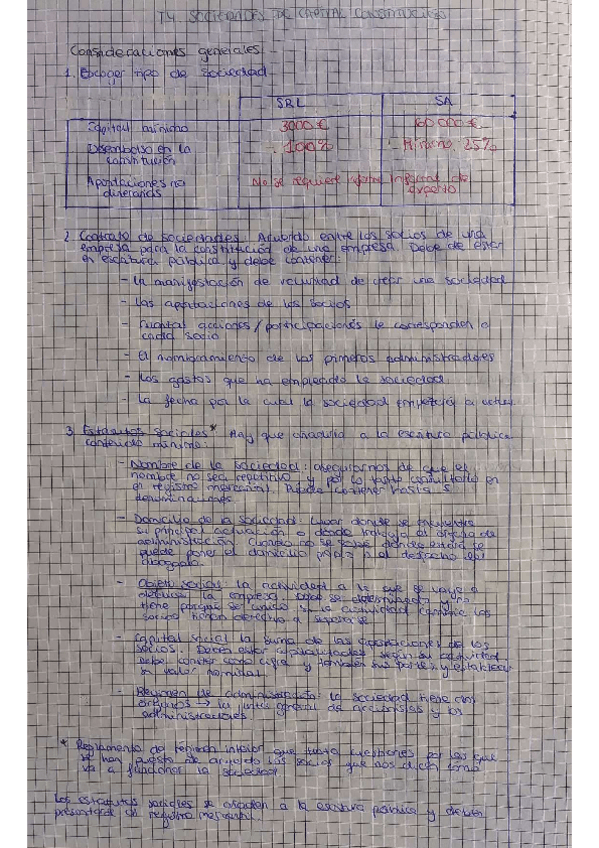 T4 SOCIEDADES DE CAPITAL CONSTITUCIÓN
Consideraciones generales
1. Escoger tipo de sociedad
SRL SA
Capital mínimo 3000 € 60 000 €
Desembolso en la constitución 100% Mínimo 25%
Aportaciones no dinerarias No se requiere Informe de experto
2. Contrato de sociedades. Acuerdo entre los socios de una
empresa para la constitución de una empresa. Debe de estar
en escritura pública y debe contener:
- La manifestación de voluntad de crear una sociedad
- Las aportaciones de los socios
- Cuantas acciones/participaciones le corresponden a
cada socio
- El nombramiento de los primeros administradores
- Los gastos que ha empleado la sociedad
- La fecha por la cual la sociedad empezará a actuar
3. Estatutos sociales* Hay que añadirlo a la escritura pública
contenido mínimo:
- Nombre de la sociedad: asegurarnos de que el
nombre no sea repetitivo y por lo tanto consultarlo en
el registro mercantil. Puede contener hasta 5
- Domicilio de la sociedad. Lugar donde se encuentra
su principal actuación o donde trabaja el órgano de
administración. Cuando no se sabe donde estará se
puede poner el domicilio o el despacho del
abogado.
- Objeto social: la actividad a la que se vaya a
dedicar la empresa. Debe ser determinada y no
tiene porque ser único si la actividad cambia los
socios tienen derecho a separarse
- Capital social la suma de las aportaciones de los
socios. Deben estar según su actividad
debe constar como cifra y también sus partes y establecer
su valor nominal.
- Regimen de administración: la sociedad tiene dos
órganos → la junta general de accionistas y los
administradores
* Reglamento de regimen interior que trata cuestiones por las que
se han puesto de acuerdo los socios que nos dicen como
va a funcionar la sociedad
Los estatutos sociales se añaden a la escritura pública y deben
presentarse en registro mercantil.